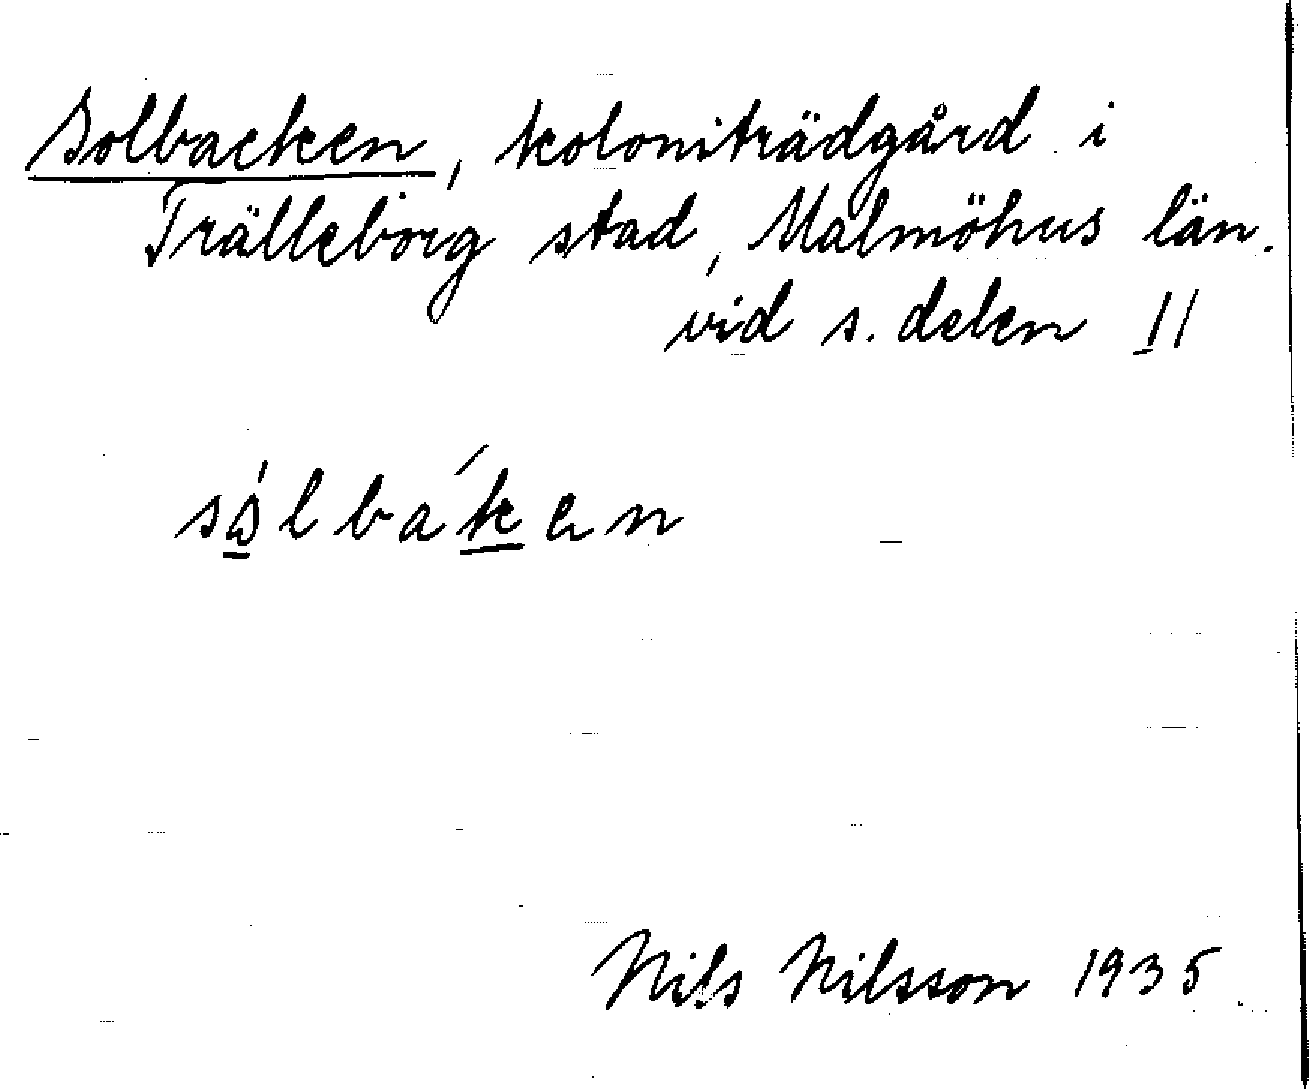 Solbacken, koloniträdgård i
Trälleborg stad, Malmöhus län.
vid s. delen II
sólbáken
Nils Nilsson 1935